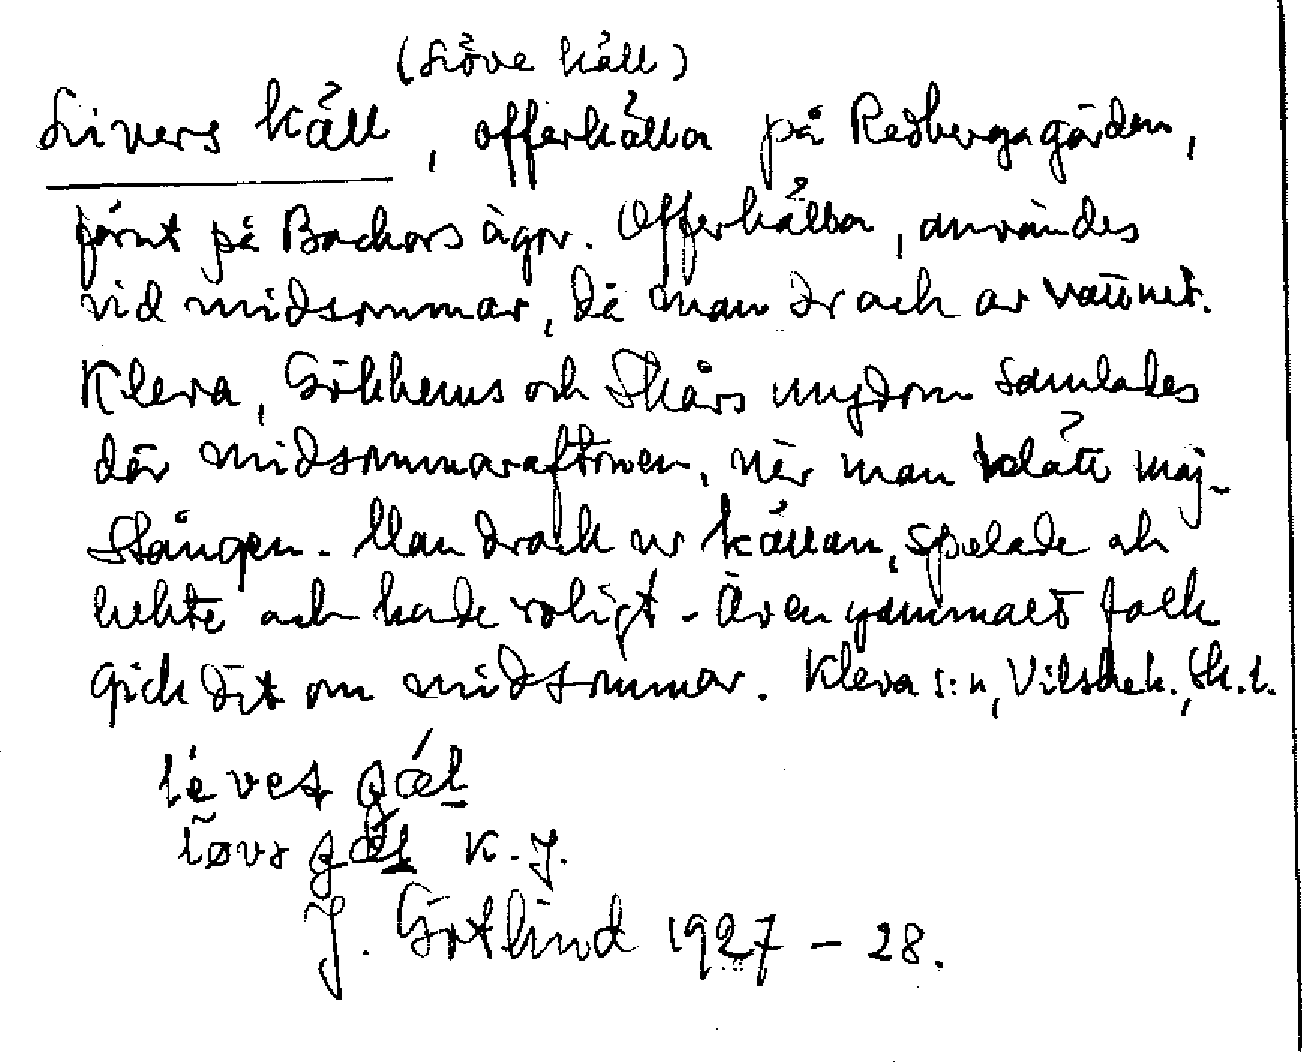 (Löve käll)
Livers käll, offerkälla på Redbergagården,
förut på Backors ägor. Offerkälla, användes
vid midsommar, då man drack av vattnet.
Kleva, Sökhems och Skårs ungdom samlades
där midsommaraftonen, när man klätt maj-
stången. Man drack ur källan, spelade och
lekte och hade roligt. Även gammalt folk
gick dit om midsommar. Kleva s:n, Vilske h., Sk.l.
K. J.
J. Götlind 1927 - 28.